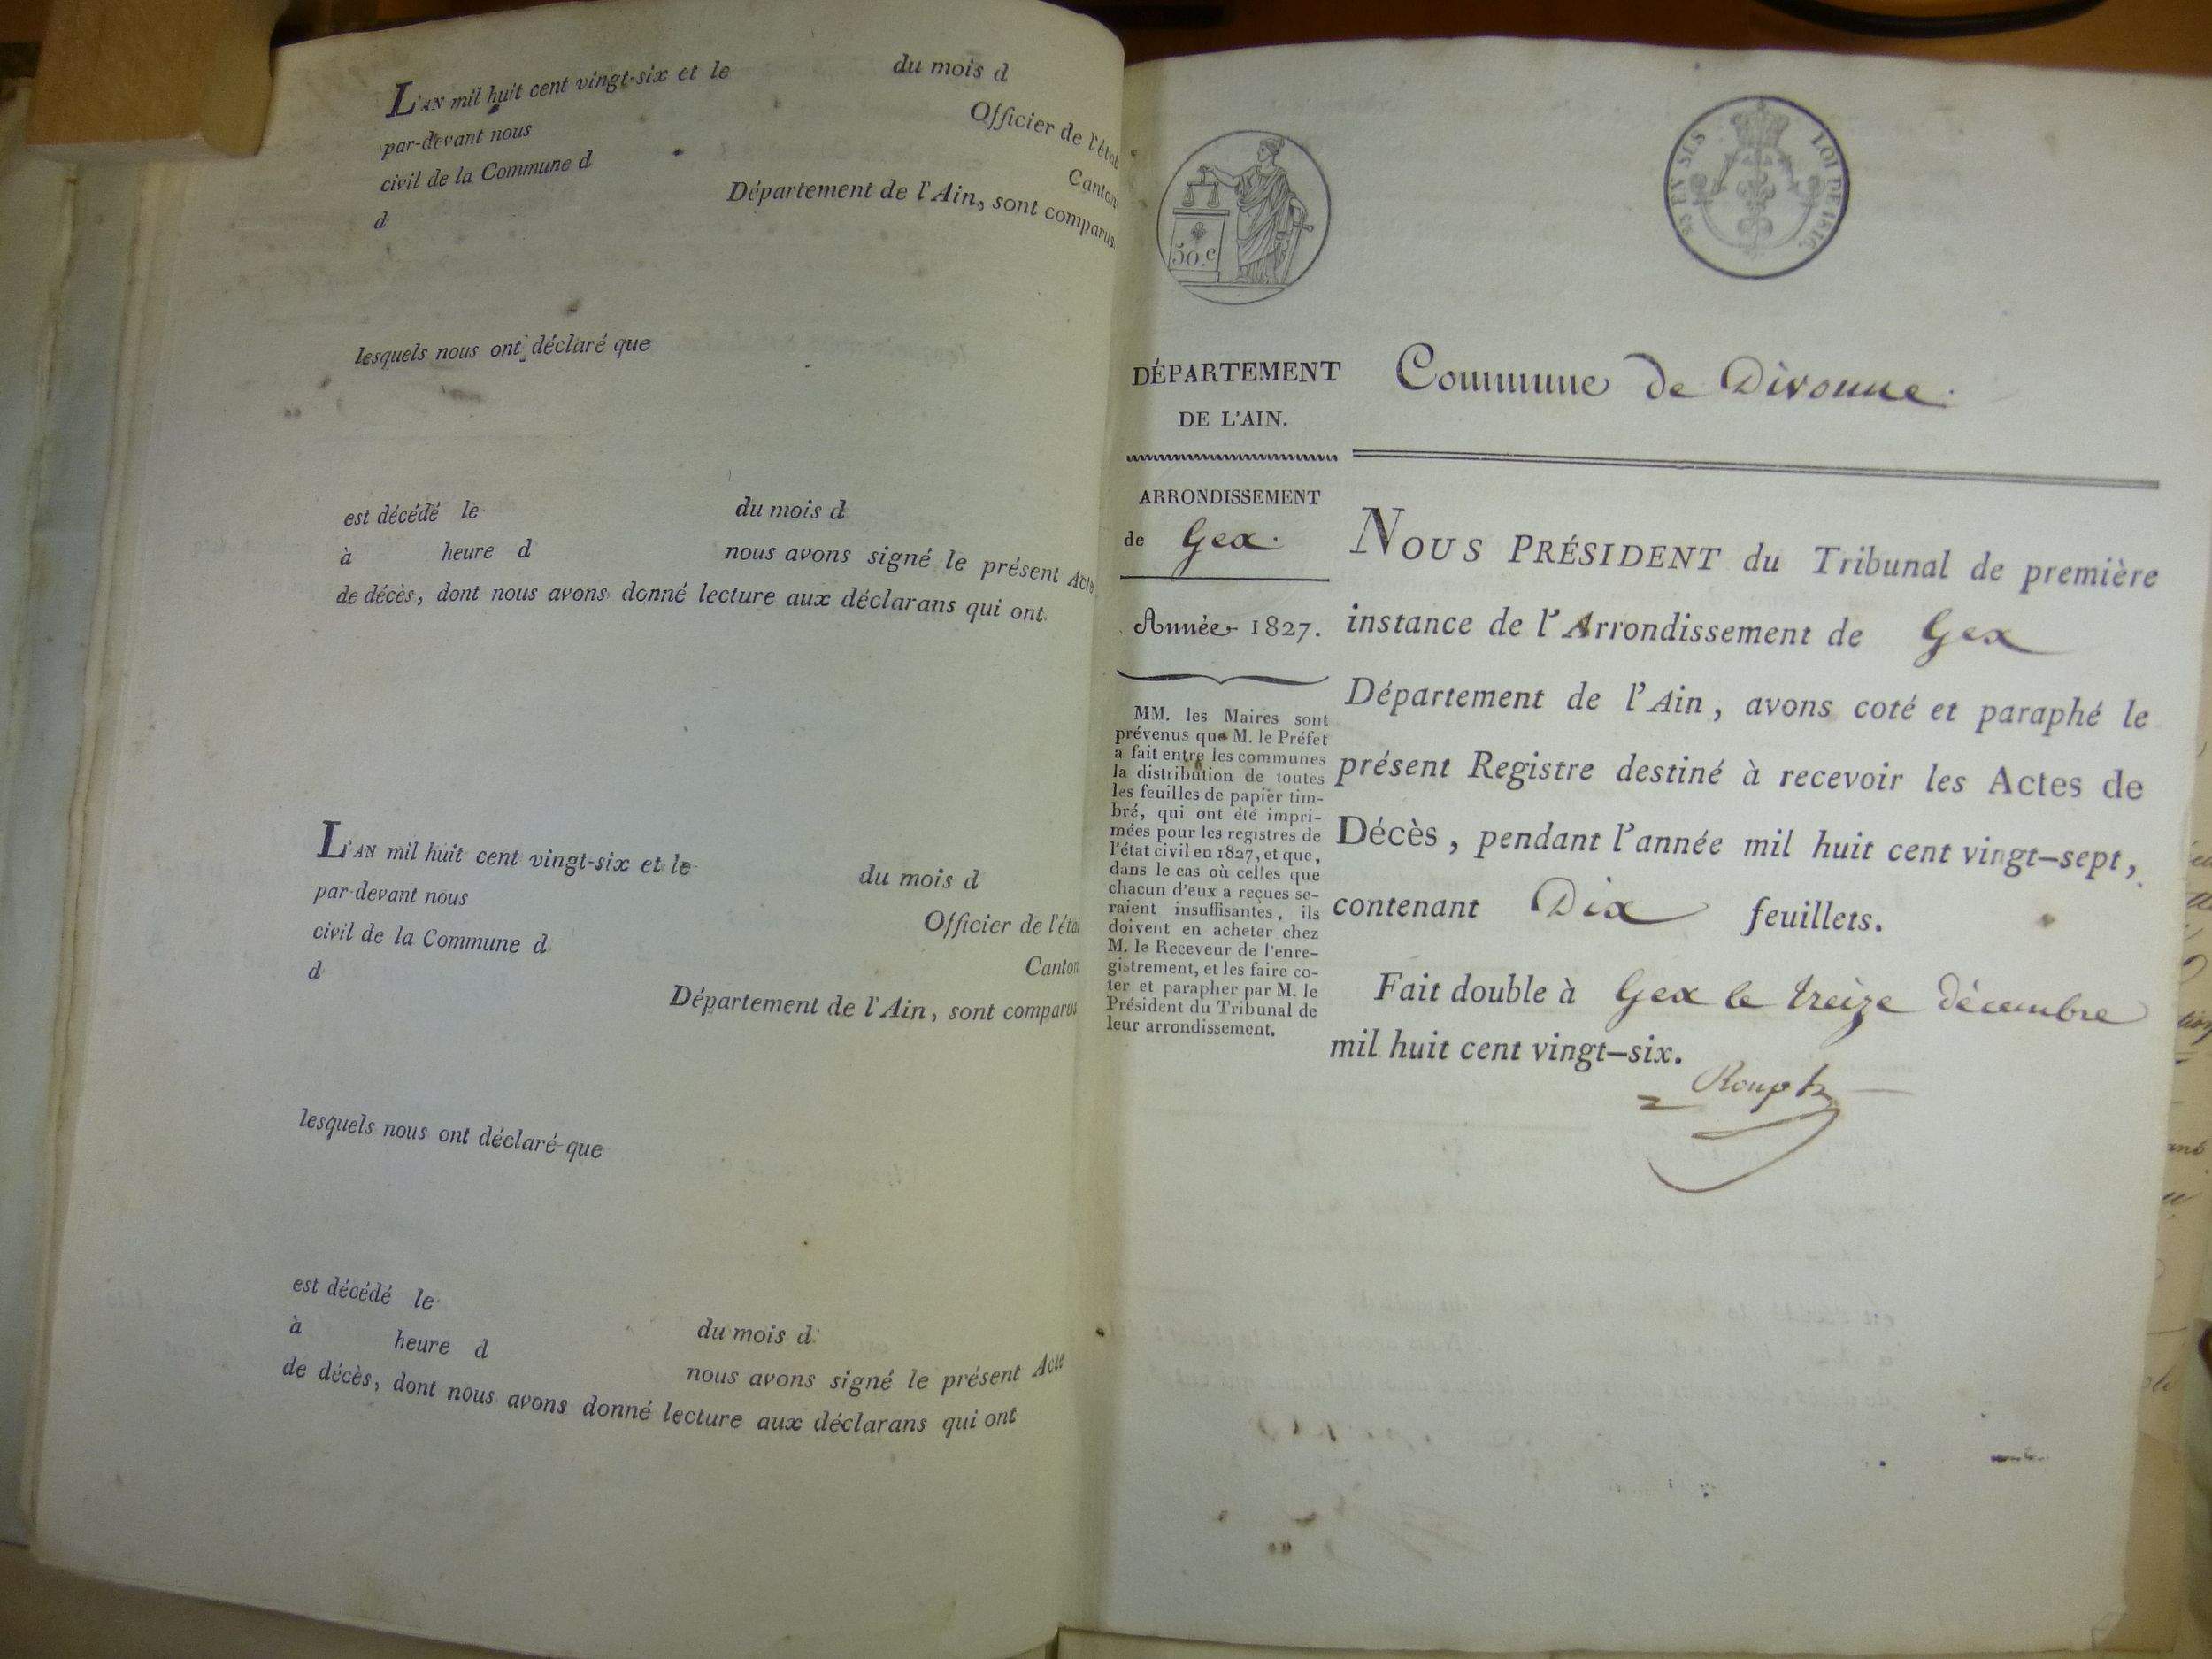 L'AN mil huit cent vingt-six et le du mois d
par-devant nous Officier de l'état
civil de la Commune d Canton
d Département de l'Ain, sont comparus
lesquels nous ont déclaré que
est décédé le du mois d
à heure d nous avons signé le présent Acte
de décès, dont nous avons donné lecture aux déclarans qui ont
L'AN mil huit cent vingt-six et le du mois d
par-devant nous Officier de l'état
civil de la Commune d Canton
d Département de l'Ain, sont comparus
lesquels nous ont déclaré que
est décédé le du mois d
à heure d nous avons signé le présent Acte
de décès, dont nous avons donné lecture aux déclarans qui ont
50.c
EN SUS LOI DE 1816
DÉPARTEMENT
DE L'AIN.
ARRONDISSEMENT
de Gex.
Année 1827.
MM. les Maires sont
prévenus que M. le Préfet
a fait entre les communes
la distribution de toutes
les feuilles de papier tim-
bré, qui ont été impri-
mées pour les registres de
l'état civil en 1827, et que,
dans le cas où celles que
chacun d'eux a reçues se-
raient insuffisantes, ils
doivent en acheter chez
M. le Receveur de l'enre-
gistrement, et les faire co-
ter et parapher par M. le
Président du Tribunal de
leur arrondissement.
Commune de Divonne.
NOUS PRÉSIDENT du Tribunal de première
instance de l'Arrondissement de Gex
Département de l'Ain, avons coté et paraphé le
présent Registre destiné à recevoir les Actes de
Décès, pendant l'année mil huit cent vingt-sept,
contenant Dix feuillets.
Fait double à Gex le treize décembre
mil huit cent vingt-six.